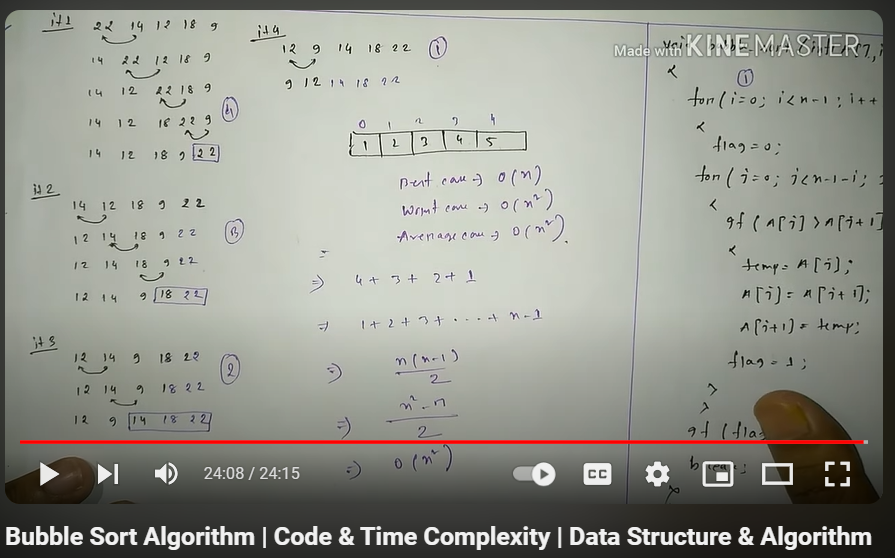 it1
22 14 12 18 9
14 22 12 18 9
14 12 22 18 9
14 12 18 22 9
14 12 18 9 22
4
it2
14 12 18 9 22
12 14 18 9 22
12 14 18 9 22
12 14 9 18 22
3
it3
12 14 9 18 22
12 14 9 18 22
12 9 14 18 22
2
it4
12 9 14 18 22
1
9 12 14 18 22
0 1 2 3 4
1 2 3 4 5
Best case → O(n)
Worst case → O(n²)
Average case → O(n²).
=
⇒ 4 + 3 + 2 + 1
⇒ 1 + 2 + 3 + .... + n-1
⇒ n(n-1)
2
⇒ n² - n
2
⇒ O(n²)
Made with KINEMASTER
{
1
for(i=0; i<n-1; i++
{
flag=0;
for(j=0; j<n-1-i;
{
if(A[j]>A[j+1]
{
temp=A[j];
A[j]=A[j+1];
A[j+1]=temp;
flag=1;
}
}
if(fla
}
24:08 / 24:15
CC
Bubble Sort Algorithm | Code & Time Complexity | Data Structure & Algorithm